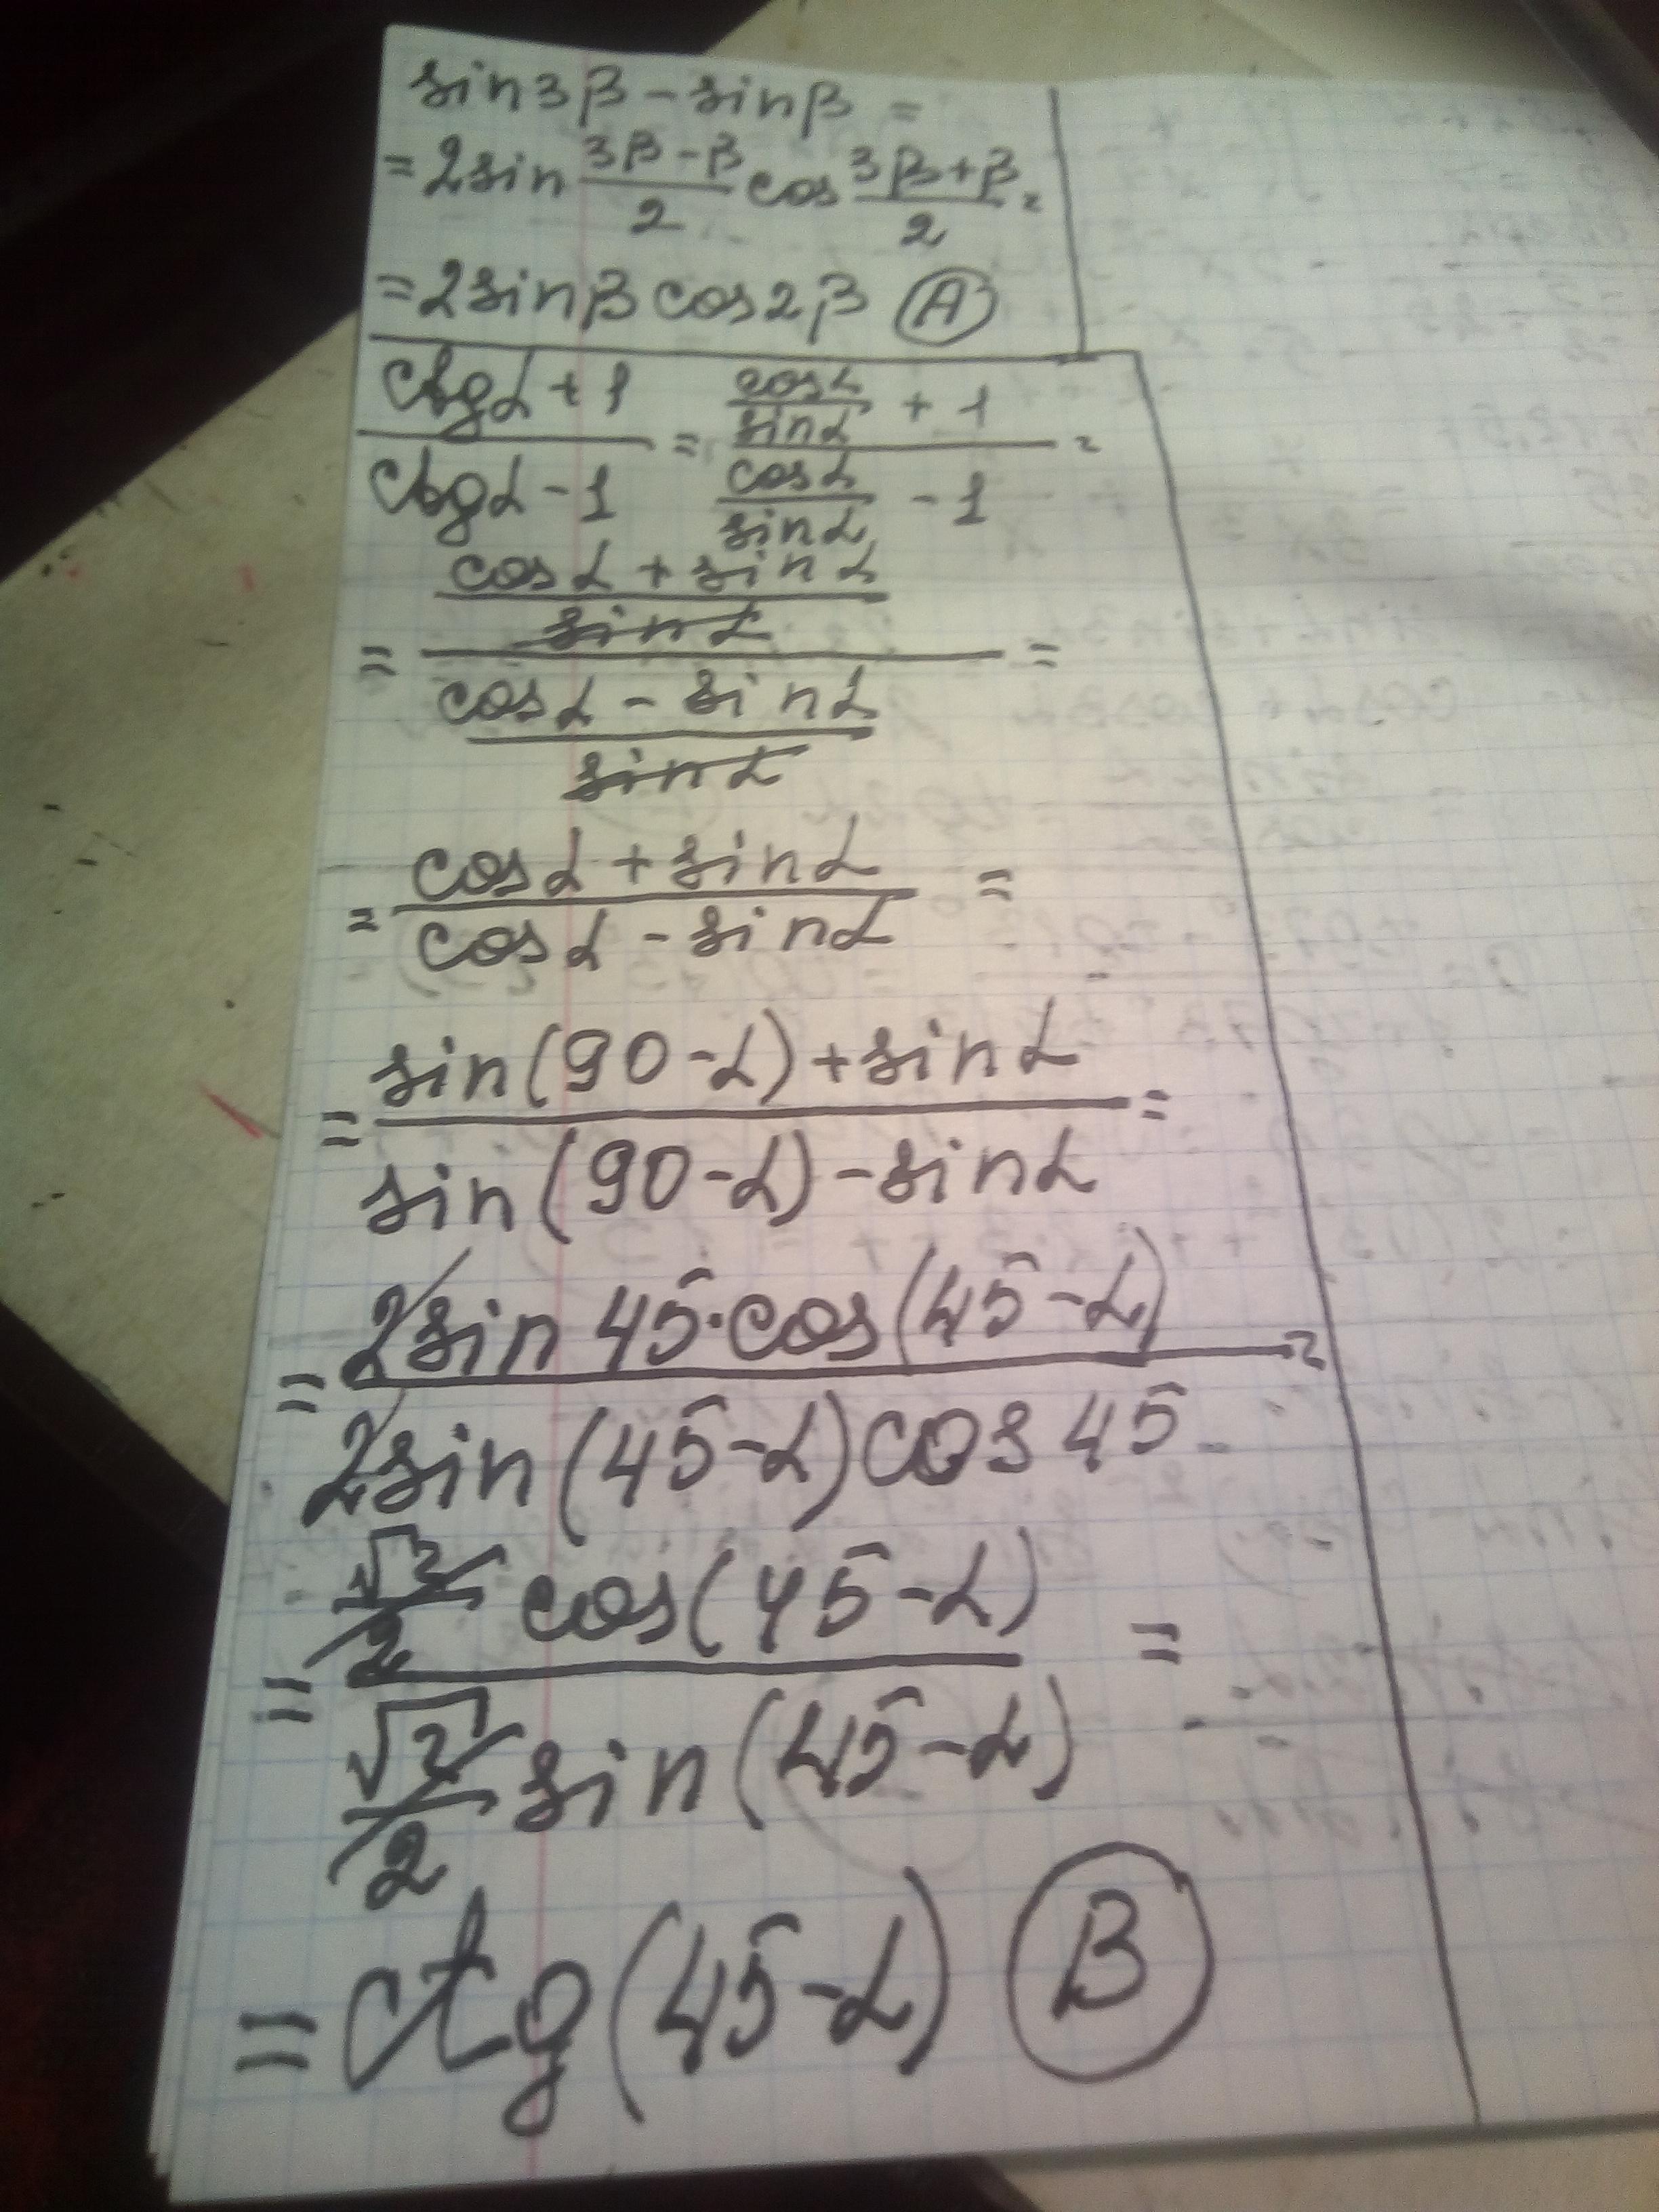 sin3β - sinβ =
= 2sin (3β - β)/2 cos (3β + β)/2 =
= 2sinβ cos2β (A)
(ctgα + 1)/(ctgα - 1) = (cosα/sinα + 1)/(cosα/sinα - 1) =
= ((cosα + sinα)/sinα)/((cosα - sinα)/sinα) =
= (cosα + sinα)/(cosα - sinα) =
= (sin(90-α) + sinα)/(sin(90-α) - sinα) =
= (2sin45·cos(45-α))/(2sin(45-α)cos45) =
= (√2/2 cos(45-α))/(√2/2 sin(45-α)) =
= ctg(45-α) (B)